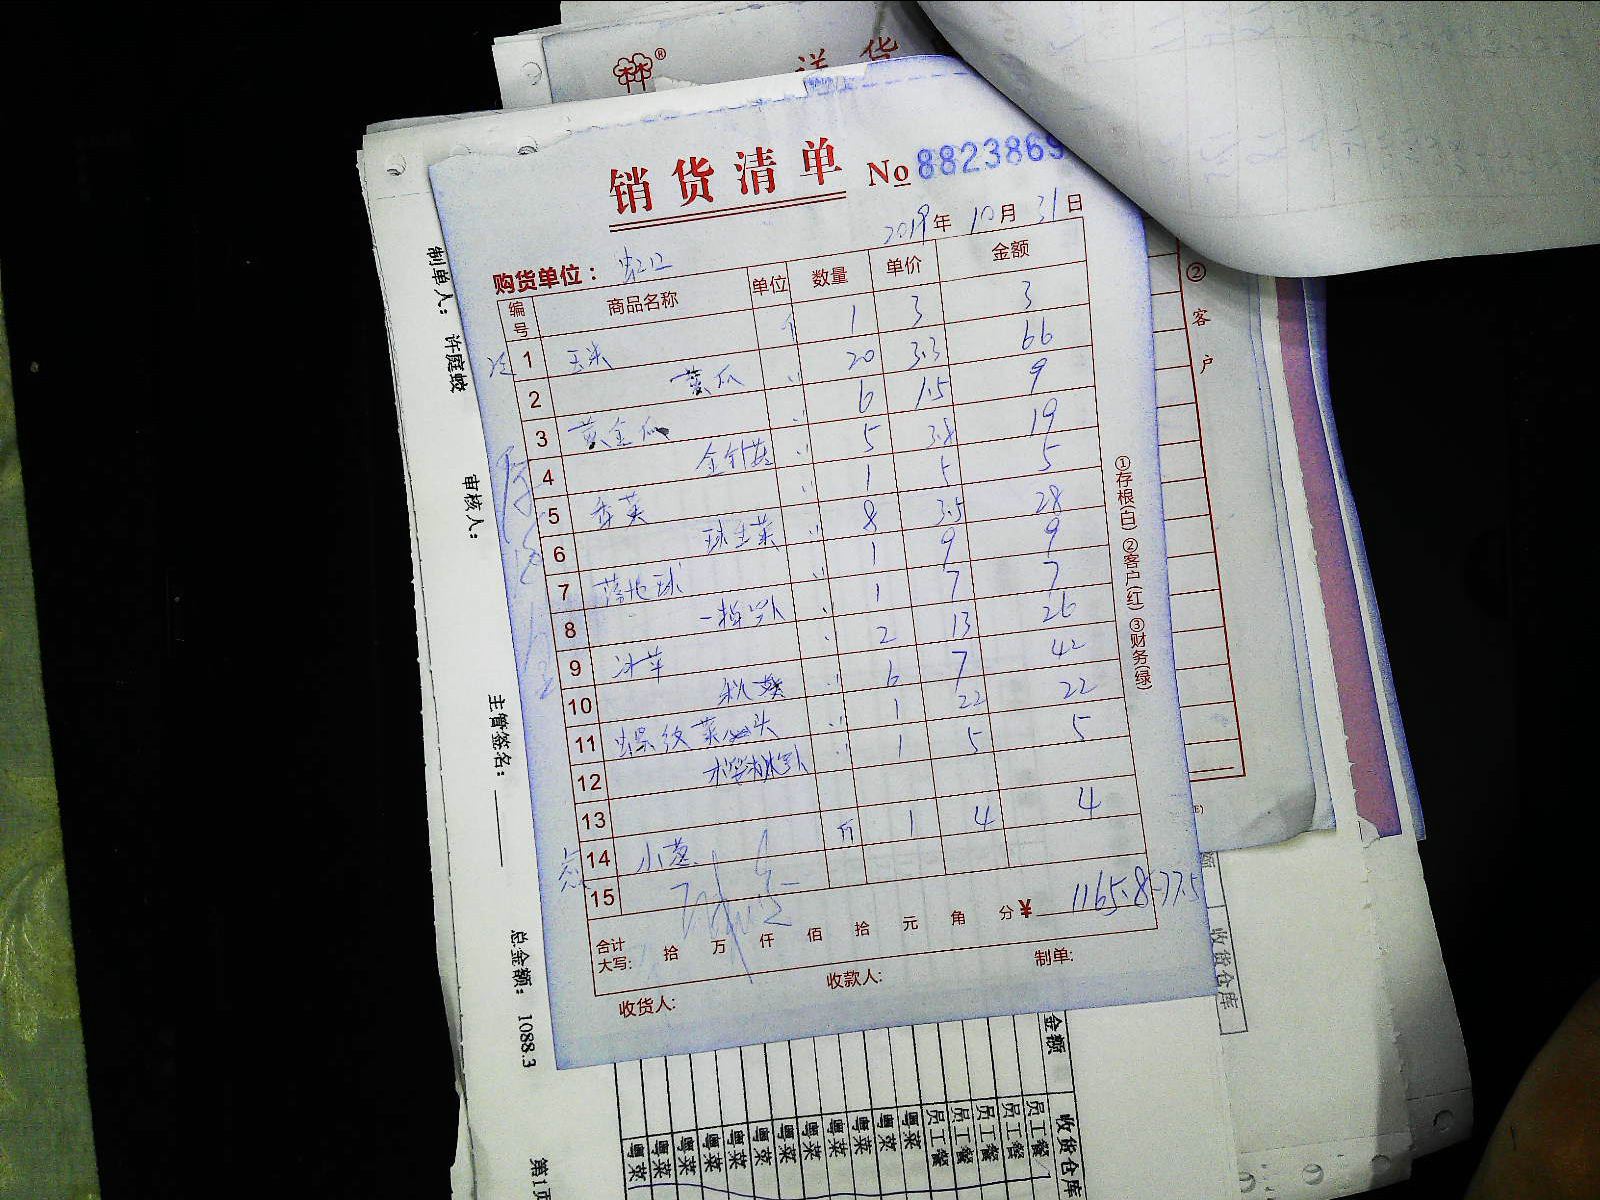 送货
销货清单 No 8823869
2019年 10月 31日
购货单位：
编号 商品名称 单位 数量 单价 金额
1 玉米 个 1 3 3
2 黄瓜 〃 20 3.3 66
3 黄金瓜 〃 6 1.5 9
4 金针菇 〃 5 3.8 19
5 香菜 〃 1 5 5
6 球生菜 〃 8 3.5 28
7 落地球 〃 1 9 9
8 〃 1 7 7
9 冰草 〃 2 13 26
10 秋葵 〃 6 7 42
11 螺纹菜头 〃 1 22 22
12 樱桃萝卜 〃 1 5 5
13
14 小葱 斤 1 4 4
15
合计大写: 拾 万 仟 佰 拾 元 角 分 ¥ 1165.8-77.5
收货人: 收款人: 制单:
①存根(白) ②客户(红) ③财务(绿)
② 客户
制单人： 许庭蛟
审核人：
主管签名：
总金额： 1088.3
第1页
收货仓库
金额
收货仓库
员工餐
员工餐
员工餐
员工餐
员工餐
粤菜
粤菜
粤菜
粤菜
粤菜
粤菜
粤菜
粤菜
粤菜
粤菜
粤菜
粤菜